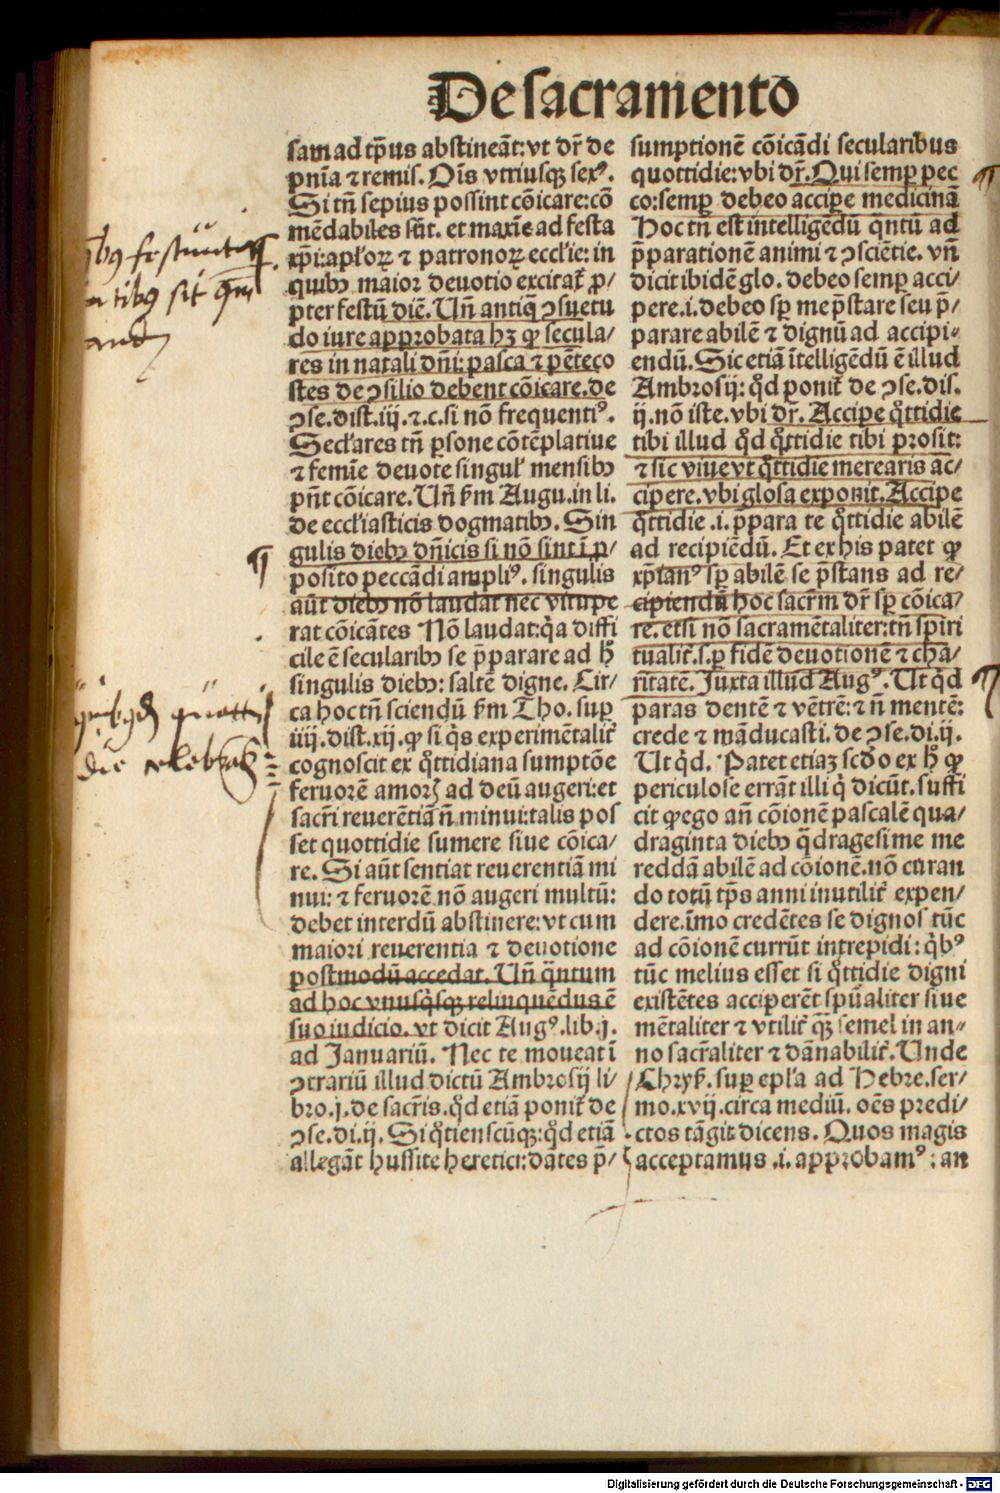 De sacramento
sam ad tp̄us abstineāt: vt dr̄ de
pnīa ⁊ remis. Oīs vtriusqꝫ sexꝰ.
Si tn̄ sepius possint cōicare: cō
mēdabiles sūt. et maxīe ad festa
xp̄i: apl'oꝝ ⁊ patronoꝝ eccl'ie: in
quibꝫ maior deuotio excitat̄ ꝓ-
pter festū diē. Vn̄ antiq̄ ꝯsuetu
do iure approbata hꝫ ꝙ secula-
res in natali dn̄i: pasca ⁊ pēteco
stes de ꝯsilio debent cōicare. de
ꝯse. dist. iij. ⁊. c. si nō frequentiꝰ.
Secl'ares tn̄ ꝑsone cōtēplatiue
⁊ femīe deuote singul' mensibꝫ
pn̄t cōicare. Vn̄ ẜm Augu. in li.
de eccl'iasticis dogmatibꝫ. Sin
gulis diebꝫ dn̄icis si nō sint ī ꝓ-
posito peccādi ampliꝰ. singulis
aūt diebꝫ nō laudat nec vitupe
rat cōicātes Nō laudat: q̄a diffi
cile ē secularibꝫ se p̄parare ad h̄
singulis diebꝫ: saltē digne. Cir-
ca hoc tn̄ sciendū ẜm Tho. suꝑ
iiij. dist. xij. ꝙ si q̇s experimētalit̄
cognoscit ex q̊ttidiana sumptōe
feruorē amoꝝ ad deū augeri: et
sacrī reuerētiā n̄ minui: talis pos
set quottidie sumere siue cōica-
re. Si aūt sentiat reuerentiā mi
nui: ⁊ feruorē nō augeri multū:
debet interdū abstinere: vt cum
maiori reuerentia ⁊ deuotione
postmodū accedat. Vn̄ q̄ntum
ad hoc vnusq̇sqꝫ relinquēdus ē
suo iudicio. vt dicit Augꝰ. lib. j.
ad Januariū. Nec te moueat ī
ꝯtrariū illud dictū Ambrosij li-
bro. j. de sacr̄is. q̊d etiā ponit̄ de
ꝯse. di. ij. Si q̊tienscūqꝫ: q̊d etiā
allegāt hussite heretici: dātes p̄-
sumptionē cōicādi secularibus
quottidie: vbi dr̄. Qui semꝑ pec
co: semꝑ debeo accipe medicinā
Hoc tn̄ est intelligēdū q̄ntū ad
p̄parationem animi ⁊ ꝯsciētie. vn̄
dicit ibidē glo. debeo semꝑ acci-
pere. i. debeo sꝑ me p̄stare seu p̄-
parare abilē ⁊ dignū ad accipi-
endū. Sic etiā ītelligēdū ē illud
Ambrosij: q̊d ponit̄ de ꝯse. dis.
ij. nō iste. vbi dr̄. Accipe q̊ttidie
tibi illud q̊d q̊ttidie tibi prosit:
⁊ sic viue vt q̊ttidie merearis ac-
cipere. vbi glosa exponit. Accipe
q̊ttidie .i. p̄para te q̊ttidie abilē
ad recipiēdū. Et ex his patet ꝙ
xp̄ianꝰ sꝑ abilē se p̄stans ad re-
cipiendū hoc sacr̄m dr̄ sꝑ cōica-
re. etsi nō sacramētaliter: tn̄ spiri
tualit̄. s. ꝑ fidē deuotionē ⁊ cha-
ritatē. Juxta illud Augꝰ. Vt q̇d
paras dentē ⁊ vētrē: ⁊ n̄ mentē:
crede ⁊ māducasti. de ꝯse. di. ij.
Vt q̇d. Patet etiaꝫ scd̄o ex h̄ ꝙ
periculose errāt illi q̇ dicūt. suffi
cit ꝙ ego an̄ cōionē pascalē qua-
draginta diebꝫ q̄dragesime me
reddā abilē ad cōionē. nō curan
do totū tp̄s anni inutilit̄ expen-
dere. īmo credētes se dignos tūc
ad cōionē currūt intrepidi: q̇bꝰ
tūc melius esset si q̊ttidie digni
existētes acciperēt spūaliter siue
mētaliter ⁊ vtilit̄ q̄ꝫ semel in an-
no sacr̄aliter ⁊ dānabilit̄. Unde
Chryẜ. suꝑ epl'a ad Hebre. ser-
mo. xvij. circa mediū. oēs predi-
ctos tāgit dicens. Quos magis
acceptamus .i. approbamꝰ: an
Digitalisierung gefördert durch die Deutsche Forschungsgemeinschaft - DFG